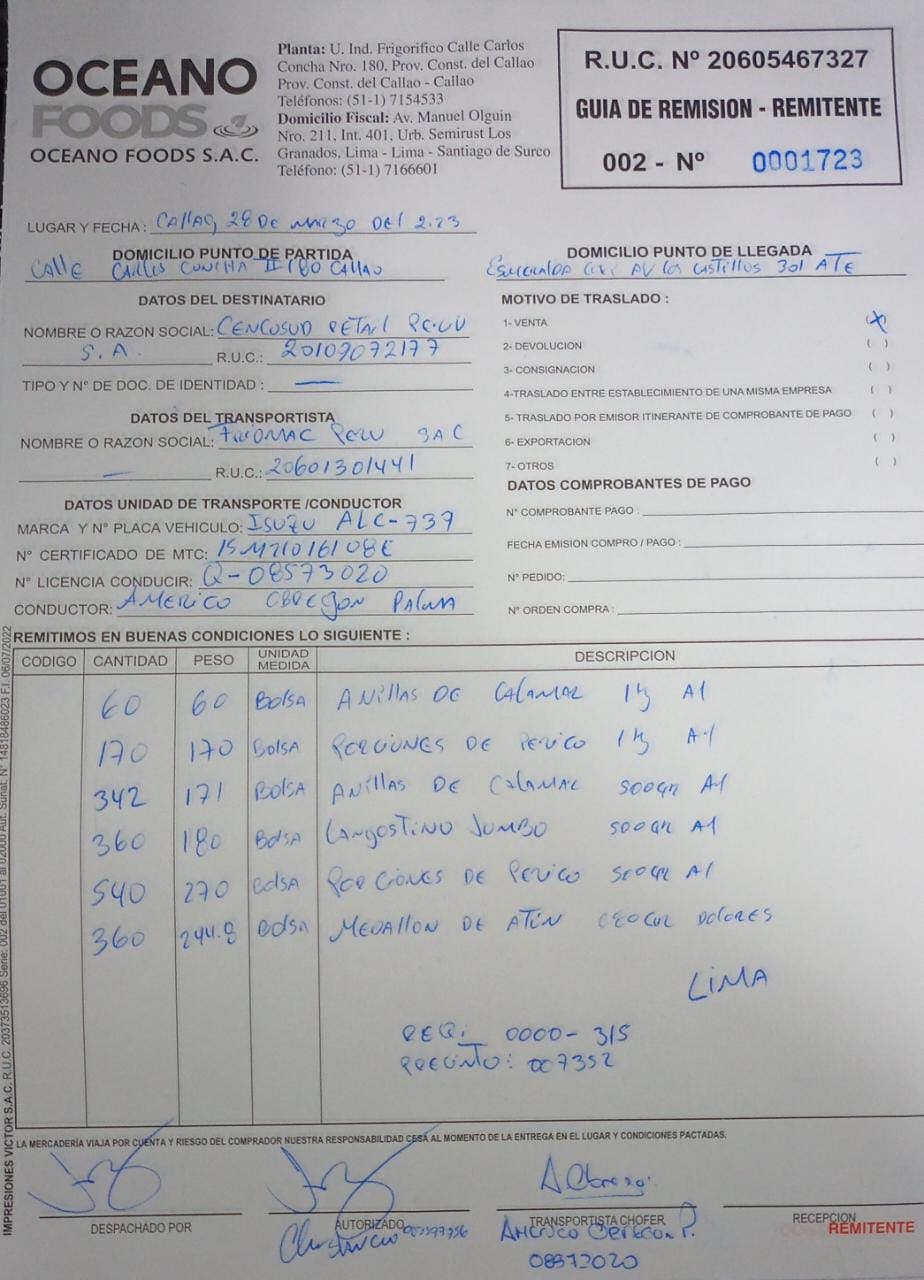 OCEANO
FOODS
OCEANO FOODS S.A.C.
Planta: U. Ind. Frigorifico Calle Carlos
Concha Nro. 180, Prov. Const. del Callao
Prov. Const. del Callao - Callao
Teléfonos: (51-1) 7154533
Domicilio Fiscal: Av. Manuel Olguin
Nro. 211, Int. 401, Urb. Semirust Los
Granados, Lima - Lima - Santiago de Surco
Teléfono: (51-1) 7166601
R.U.C. Nº 20605467327
GUIA DE REMISION - REMITENTE
002 - Nº 0001723
LUGAR Y FECHA: CALLAO, 28 DE MARZO DEL 2023
DOMICILIO PUNTO DE PARTIDA
CALLE CARLOS CONCHA 180 CALLAO
DOMICILIO PUNTO DE LLEGADA
ESMERALDA AV LOS CASTILLOS 301 ATE
DATOS DEL DESTINATARIO
NOMBRE O RAZON SOCIAL: CENCOSUD RETAIL PERU
S.A. R.U.C.: 20109072177
TIPO Y N° DE DOC. DE IDENTIDAD : —
DATOS DEL TRANSPORTISTA
NOMBRE O RAZON SOCIAL: PERU SAC
— R.U.C.: 20601301441
DATOS UNIDAD DE TRANSPORTE /CONDUCTOR
MARCA Y N° PLACA VEHICULO: ISUZU ALC-739
N° CERTIFICADO DE MTC: 15M21016108E
N° LICENCIA CONDUCIR: Q-08573020
CONDUCTOR: AMERICO OBREGON PALMA
MOTIVO DE TRASLADO :
1- VENTA (X)
2- DEVOLUCION ( )
3- CONSIGNACION ( )
4-TRASLADO ENTRE ESTABLECIMIENTO DE UNA MISMA EMPRESA ( )
5- TRASLADO POR EMISOR ITINERANTE DE COMPROBANTE DE PAGO ( )
6- EXPORTACION ( )
7- OTROS ( )
DATOS COMPROBANTES DE PAGO
N° COMPROBANTE PAGO :
FECHA EMISION COMPRO / PAGO :
N° PEDIDO:
N° ORDEN COMPRA :
REMITIMOS EN BUENAS CONDICIONES LO SIGUIENTE :
CODIGO CANTIDAD PESO UNIDAD MEDIDA DESCRIPCION
60 60 BOLSA ANILLAS DE CALAMAR 1 kg A1
170 170 BOLSA PORCIONES DE PERICO 1 kg A1
342 171 BOLSA ANILLAS DE CALAMAR 500GR A1
360 180 BOLSA LANGOSTINO JUMBO 500GR A1
540 270 BOLSA PORCIONES DE PERICO 500GR A1
360 244.8 BOLSA MEDALLON DE ATÚN 680GR DOLORES
LIMA
REQ: 0000-315
PRECINTO: 007352
LA MERCADERÍA VIAJA POR CUENTA Y RIESGO DEL COMPRADOR NUESTRA RESPONSABILIDAD CESA AL MOMENTO DE LA ENTREGA EN EL LUGAR Y CONDICIONES PACTADAS.
DESPACHADO POR
AUTORIZADO
A Obregon
TRANSPORTISTA CHOFER
AMERICO OBREGON P.
08573020
RECEPCION
REMITENTE
IMPRESIONES VICTOR S.A.C. R.U.C. 20373513696 Serie: 002 del 01001 al 02000 Aut. Sunat. N° 14818486023 F.I. 06/07/2022